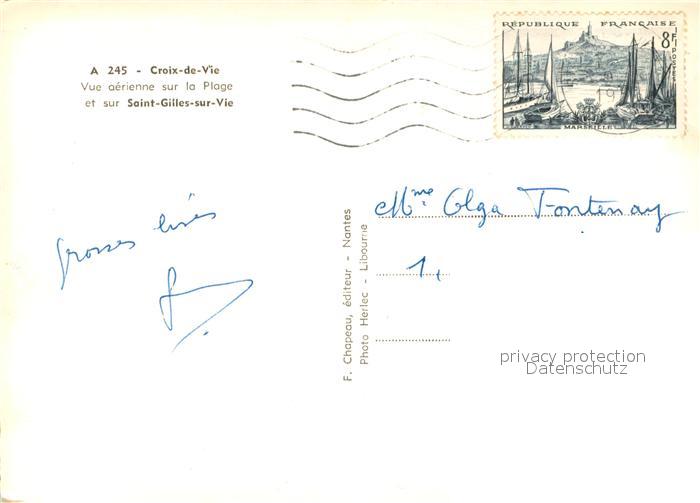 A 245 - Croix-de-Vie
Vue aérienne sur la Plage
et sur Saint-Gilles-sur-Vie
RÉPUBLIQUE FRANÇAISE
8F
POSTES
MARSEILLE
19
grosses bises
Mme Olga Fontenay
1,
F. Chapeau, éditeur - Nantes
Photo Herlec - Libourne
privacy protection
Datenschutz